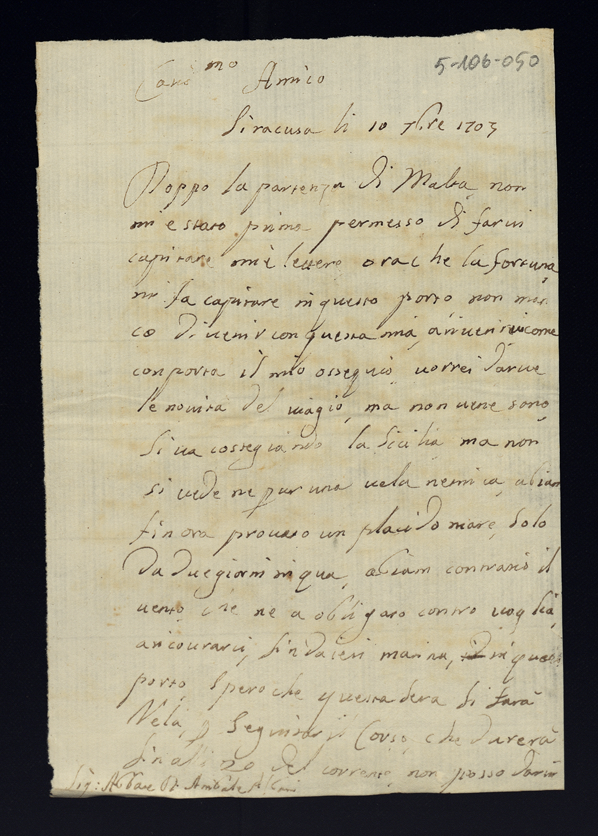 5-106-050
Car.mo Amico
Siracusa li 10 7bre 1703
Doppo la partenza di Malta, non
mi e stato prima permesso di farvi
capitare mie lettere ora che la fortuna
mi fa capitare in questo porto non man
co di venir con questa mia, a riverirvi come
comporta il mio ossequio, vorrei darve
le novità del viagio, ma non vene sono,
si va cosseg­iando la Sicilia, ma non
si vede ne pur una vela nemica, abiam
fin ora provato un placido mare, solo
da due giorni in qua, abiam contrario il
vento, che ne a obligato contro voglia,
ancorarci, sin da ieri matina, in questo
porto, spero che questa sera si farà
Vela, p seguitar il Corso, che durerà
sin alli 20 del corrente, non posso darvi
Sig: Abbate Anibale